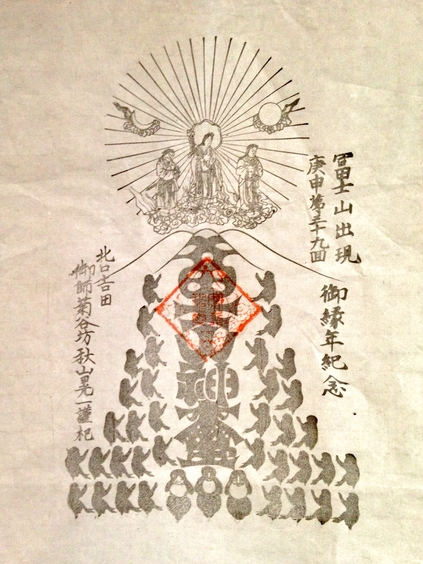 冨士山出現
庚申第三十九回
御縁年紀念
神
北口吉田
御師菊谷坊秋山晃一謹